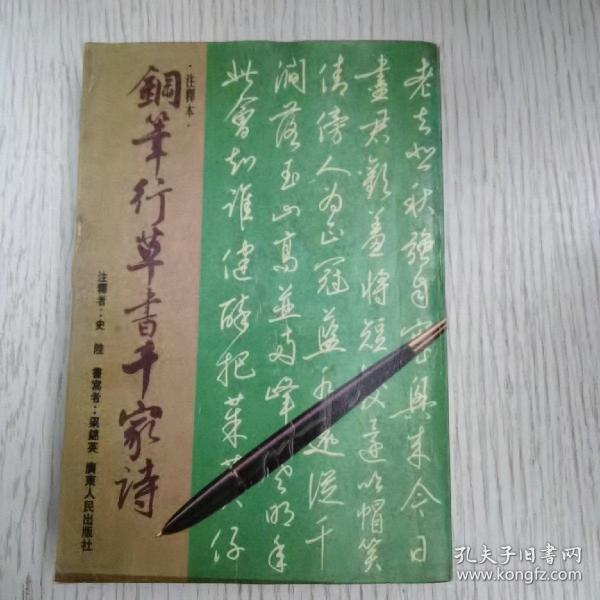 老去悲秋強自寬興來今日
盡君歡羞將短髮還吹帽笑
倩傍人为正冠藍水遠從千
澗落玉山高並兩峰寒明年
此會知誰健醉把茱萸仔
·注釋本·
鋼筆行草書千家詩
注釋者：史 陸 書寫者：梁錦英 廣東人民出版社
孔夫子旧书网
www.kongfz.com